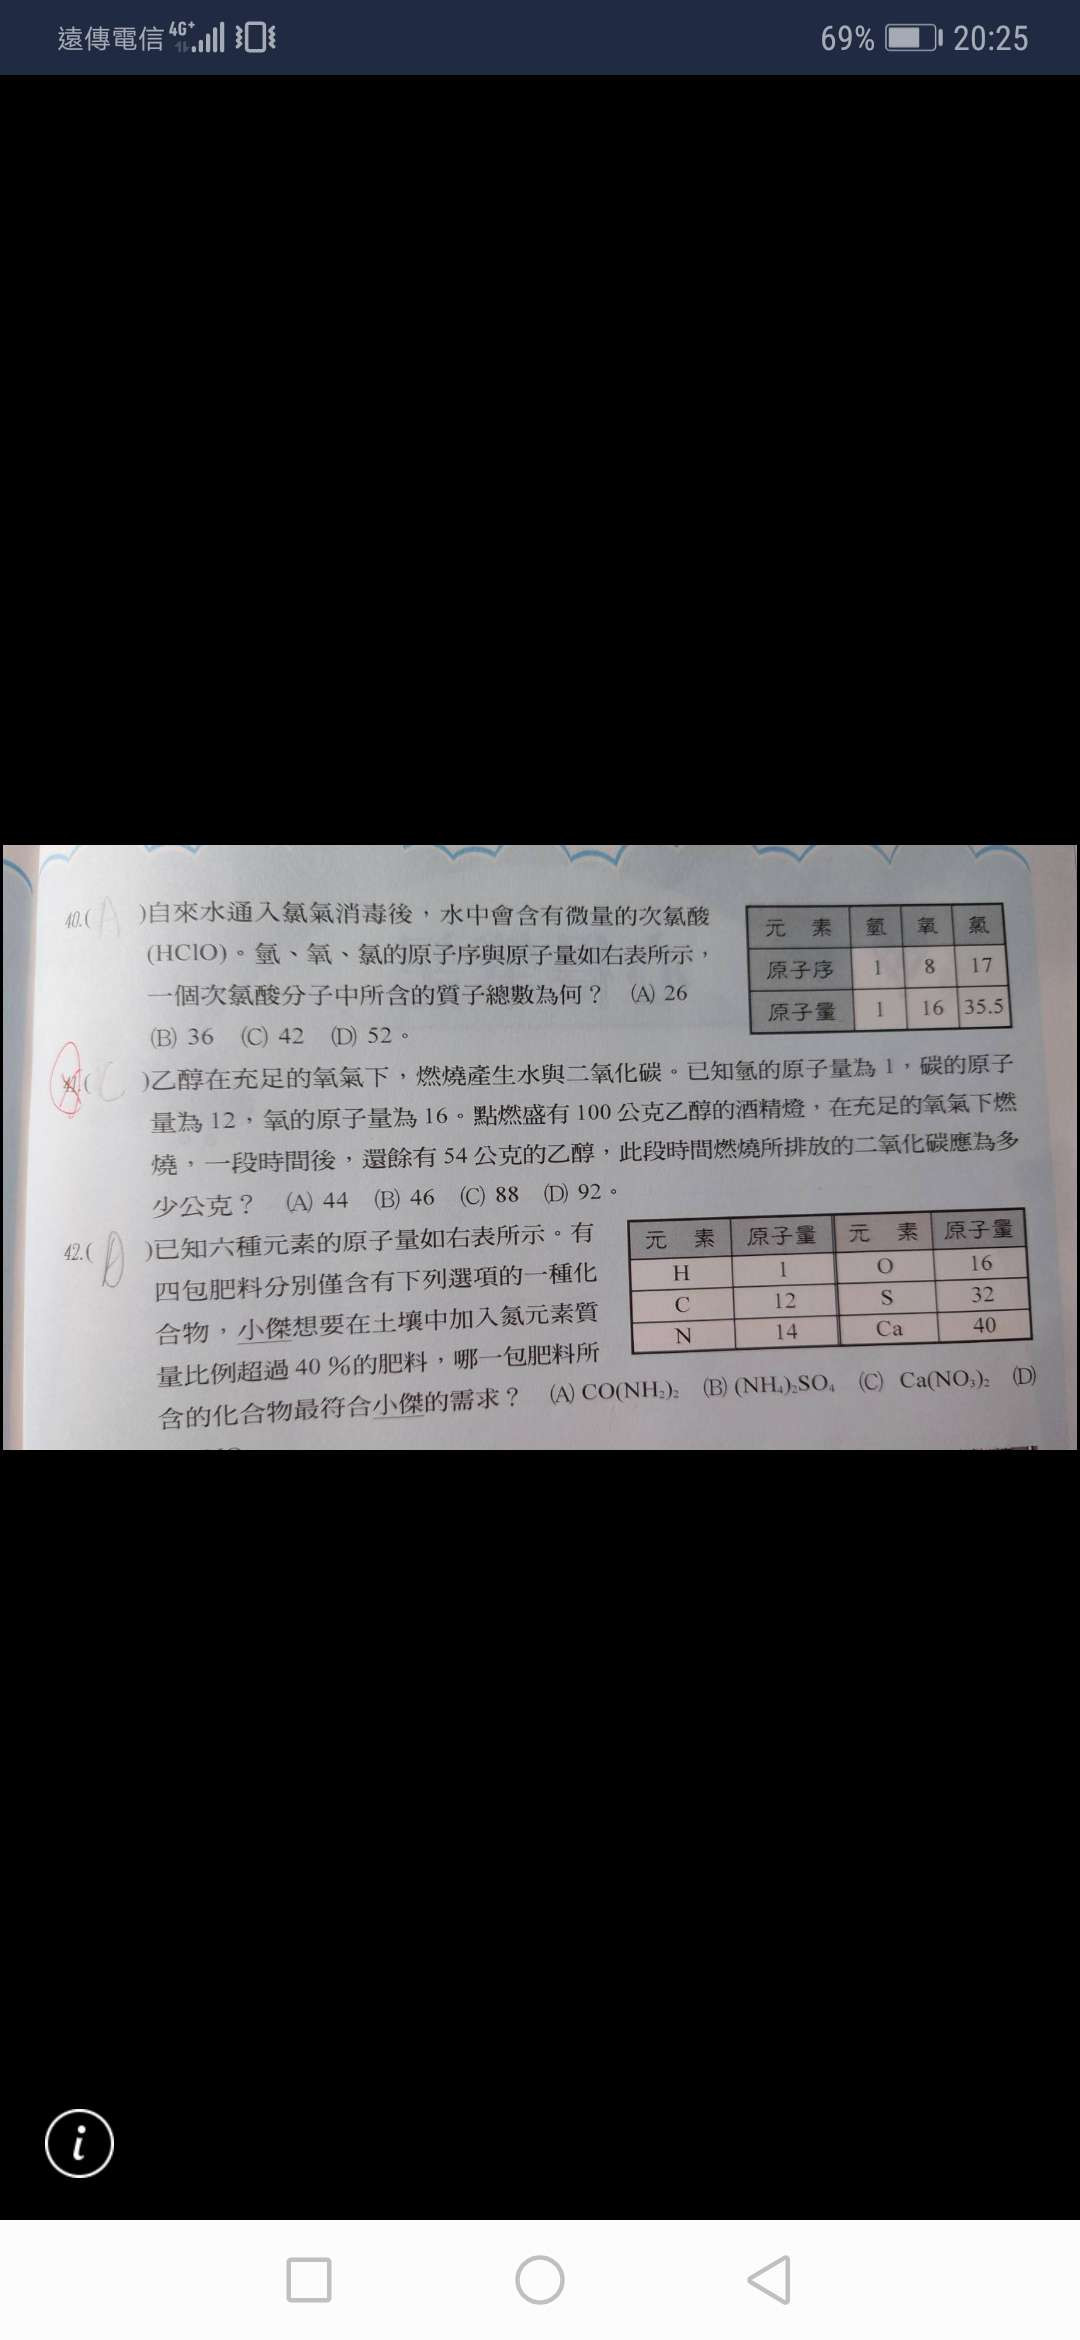 遠傳電信 4G+ 69% 20:25
40.( A )自來水通入氯氣消毒後，水中會含有微量的次氯酸
(HClO)。氫、氧、氯的原子序與原子量如右表所示，
一個次氯酸分子中所含的質子總數為何？ (A) 26
(B) 36 (C) 42 (D) 52。
元 素 氫 氧 氯
原子序 1 8 17
原子量 1 16 35.5
41.( C )乙醇在充足的氧氣下，燃燒產生水與二氧化碳。已知氫的原子量為 1，碳的原子
量為 12，氧的原子量為 16。點燃盛有 100 公克乙醇的酒精燈，在充足的氧氣下燃
燒，一段時間後，還餘有 54 公克的乙醇，此段時間燃燒所排放的二氧化碳應為多
少公克？ (A) 44 (B) 46 (C) 88 (D) 92。
42.( D )已知六種元素的原子量如右表所示。有
四包肥料分別僅含有下列選項的一種化
合物，小傑想要在土壤中加入氮元素質
量比例超過 40 %的肥料，哪一包肥料所
含的化合物最符合小傑的需求？ (A) CO(NH₂)₂ (B) (NH₄)₂SO₄ (C) Ca(NO₃)₂ (D)
元 素 原子量 元 素 原子量
H 1 O 16
C 12 S 32
N 14 Ca 40
i